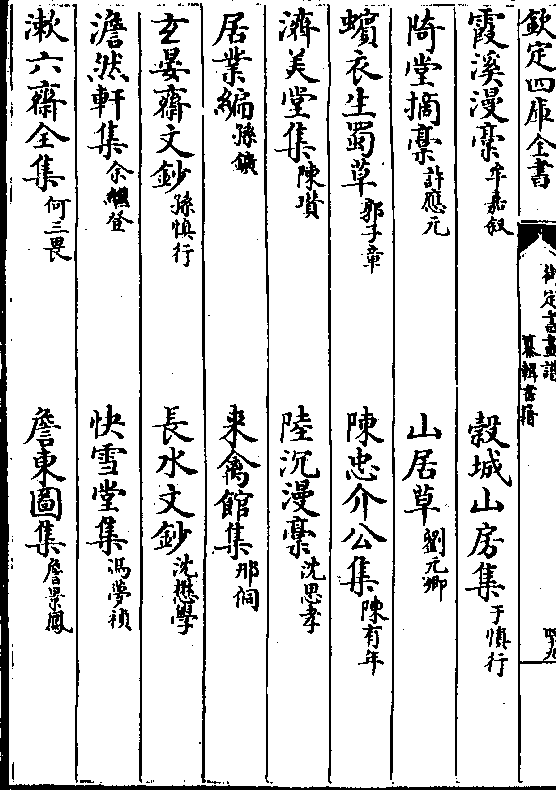 欽定四庫全書
御定書畫譜
纂輯書籍
四十九
霞溪漫稾牟嘉叙 穀城山房集于慎行
陭堂摘稾許應元 山居草劉元卿
蠙衣生蜀草郭子章 陳忠介公集陳有年
濟美堂集陳瓚 陸沉漫稾沈思孝
居業編孫鑛 来禽館集邢侗
玄晏齋文鈔孫慎行 長水文鈔沈懋學
澹然軒集余繼登 快雪堂集馮夢禎
漱六齋全集何三畏 詹東圖集詹景鳳